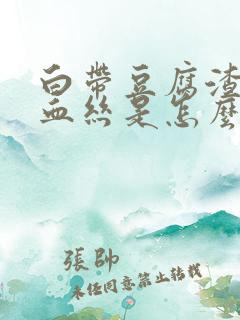 白帶豆腐渣
血絲是怎麼
張帥
未經同意禁止轉載